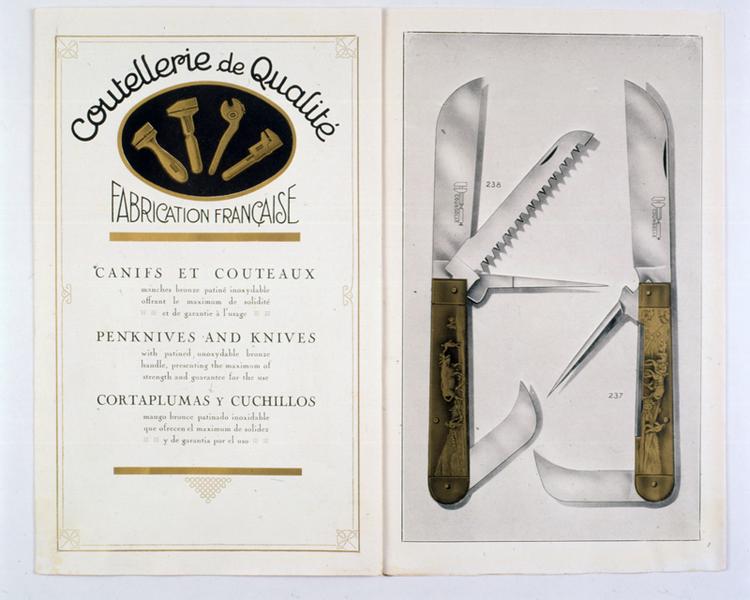 Coutellerie de Qualité
FABRICATION FRANÇAISE
CANIFS ET COUTEAUX
manches bronze patiné inoxydable
offrant le maximum de solidité
et de garantie à l'usage
PENKNIVES AND KNIVES
with patined unoxydable bronze
handle, presenting the maximum of
strength and guarantee for the use
CORTAPLUMAS Y CUCHILLOS
mango bronce patinado inoxidable
que ofrecen el maximum de solidez
y de garantia por el uso
238
237